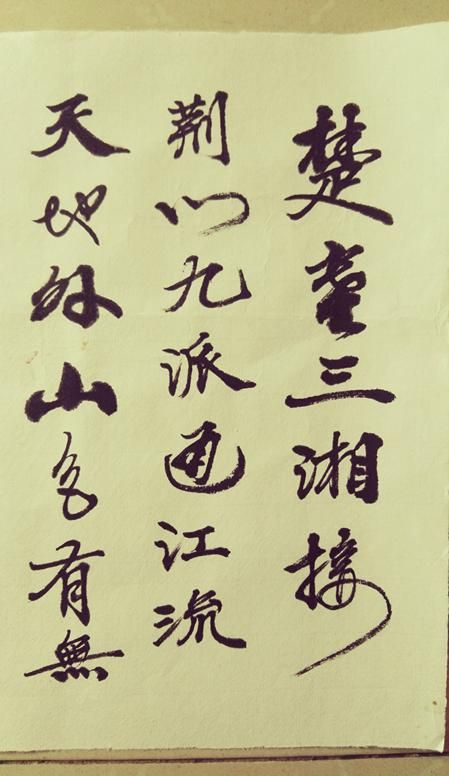 楚塞三湘接
荆门九派通江流
天地外山色有無